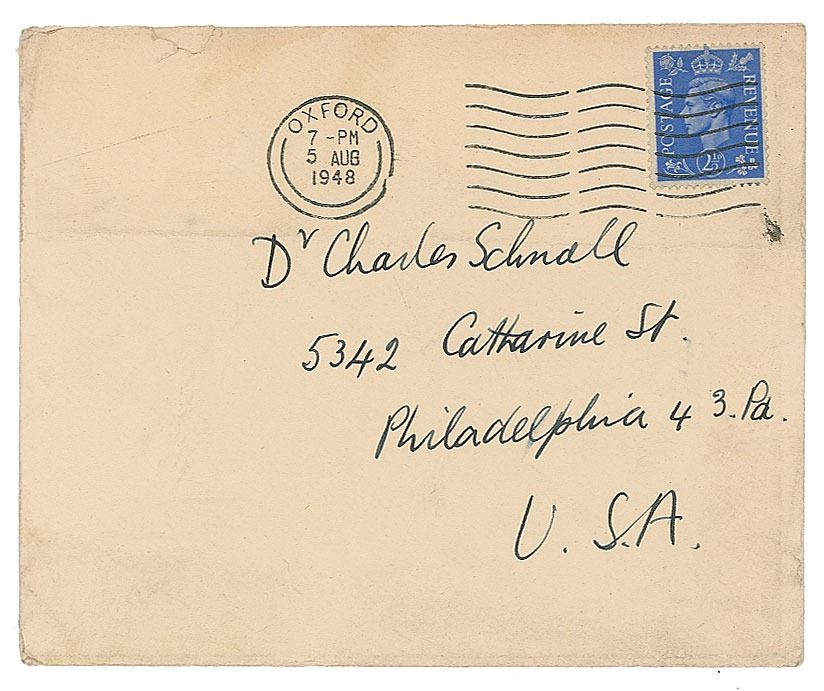 OXFORD
7 - PM
5 AUG
1948
POSTAGE REVENUE
2½D
Dr Charles Schnall
5342 Catharine St.
Philadelphia 43. Pa.
U. S.A.